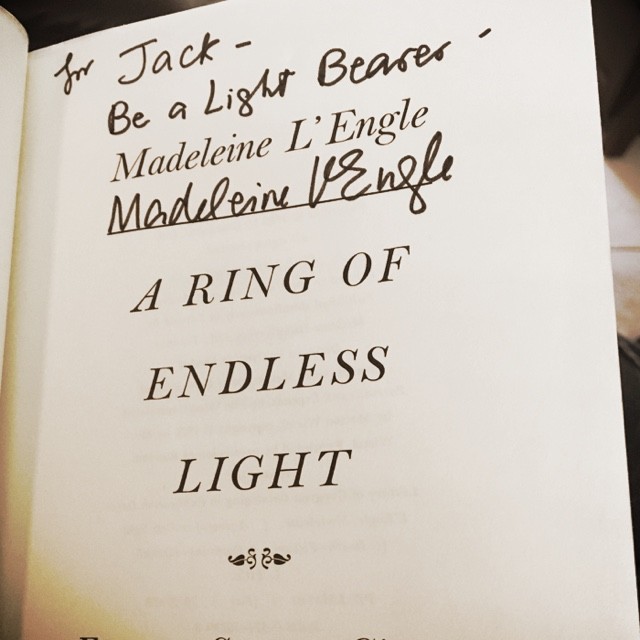 for Jack -
Be a Light Bearer -
Madeleine L'Engle
Madeleine L'Engle
A RING OF
ENDLESS
LIGHT